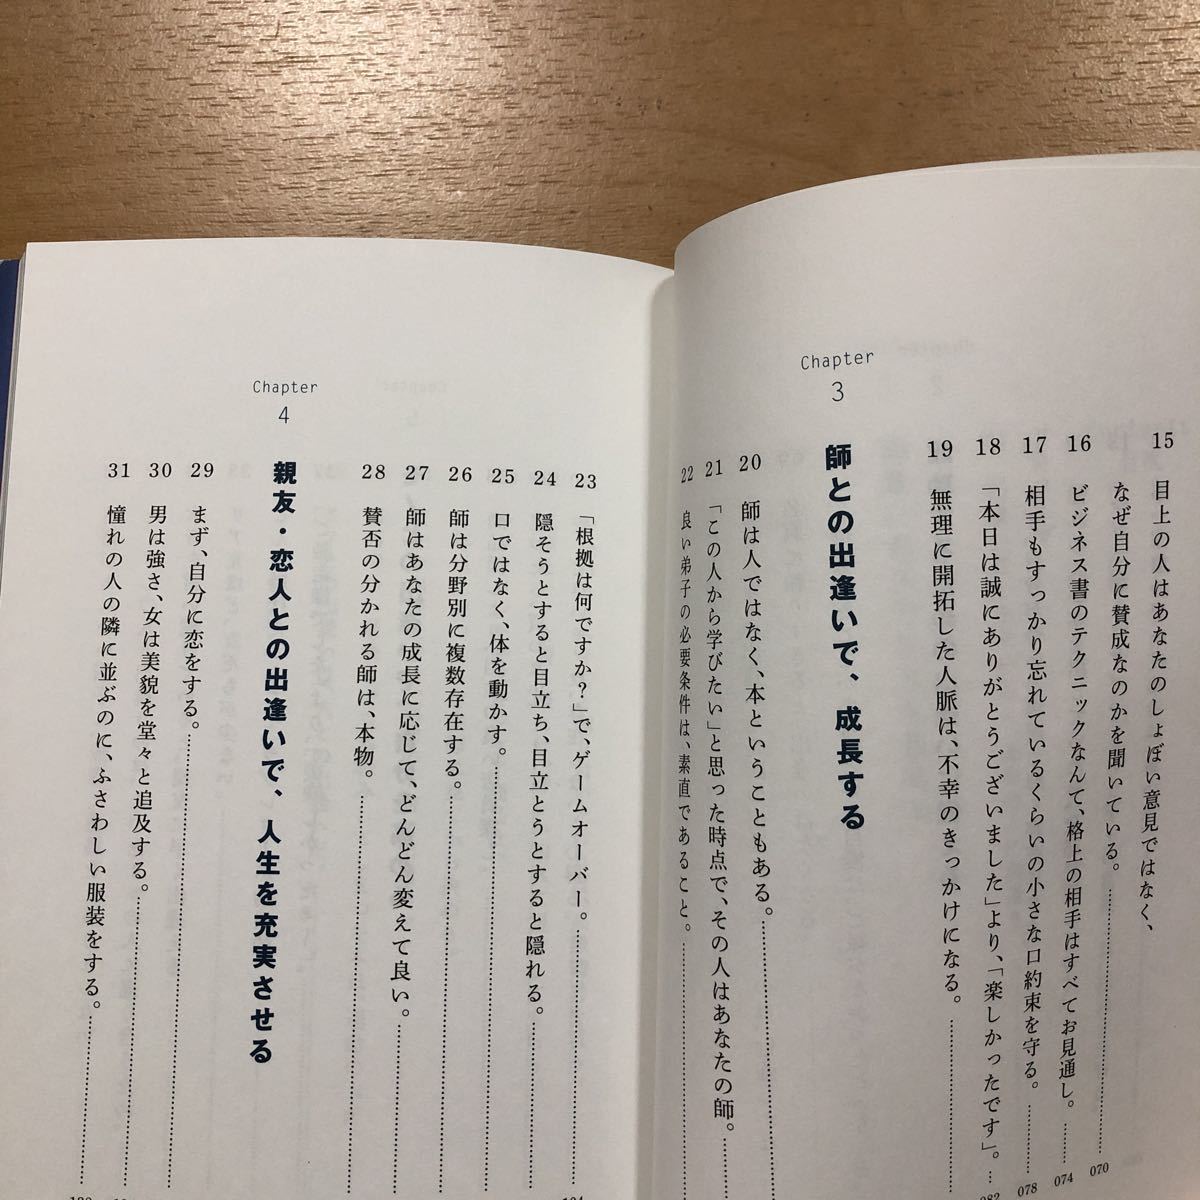 15 目上の人はあなたのしょぼい意見ではなく、
なぜ自分に賛成なのかを聞いている。 070
16 ビジネス書のテクニックなんて、格上の相手はすべてお見通し。 074
17 相手もすっかり忘れているくらいの小さな口約束を守る。 078
18 「本日は誠にありがとうございました」より、「楽しかったです」。 082
19 無理に開拓した人脈は、不幸のきっかけになる。
Chapter
3
師との出逢いで、成長する
20 師は人ではなく、本ということもある。
21 「この人から学びたい」と思った時点で、その人はあなたの師。
22 良い弟子の必要条件は、素直であること。
23 「根拠は何ですか?」で、ゲームオーバー。
24 隠そうとすると目立ち、目立とうとすると隠れる。
25 口ではなく、体を動かす。
26 師は分野別に複数存在する。
27 師はあなたの成長に応じて、どんどん変えて良い。
28 賛否の分かれる師は、本物。
Chapter
4
親友・恋人との出逢いで、人生を充実させる
29 まず、自分に恋をする。
30 男は強さ、女は美貌を堂々と追及する。
31 憧れの人の隣に並ぶのに、ふさわしい服装をする。